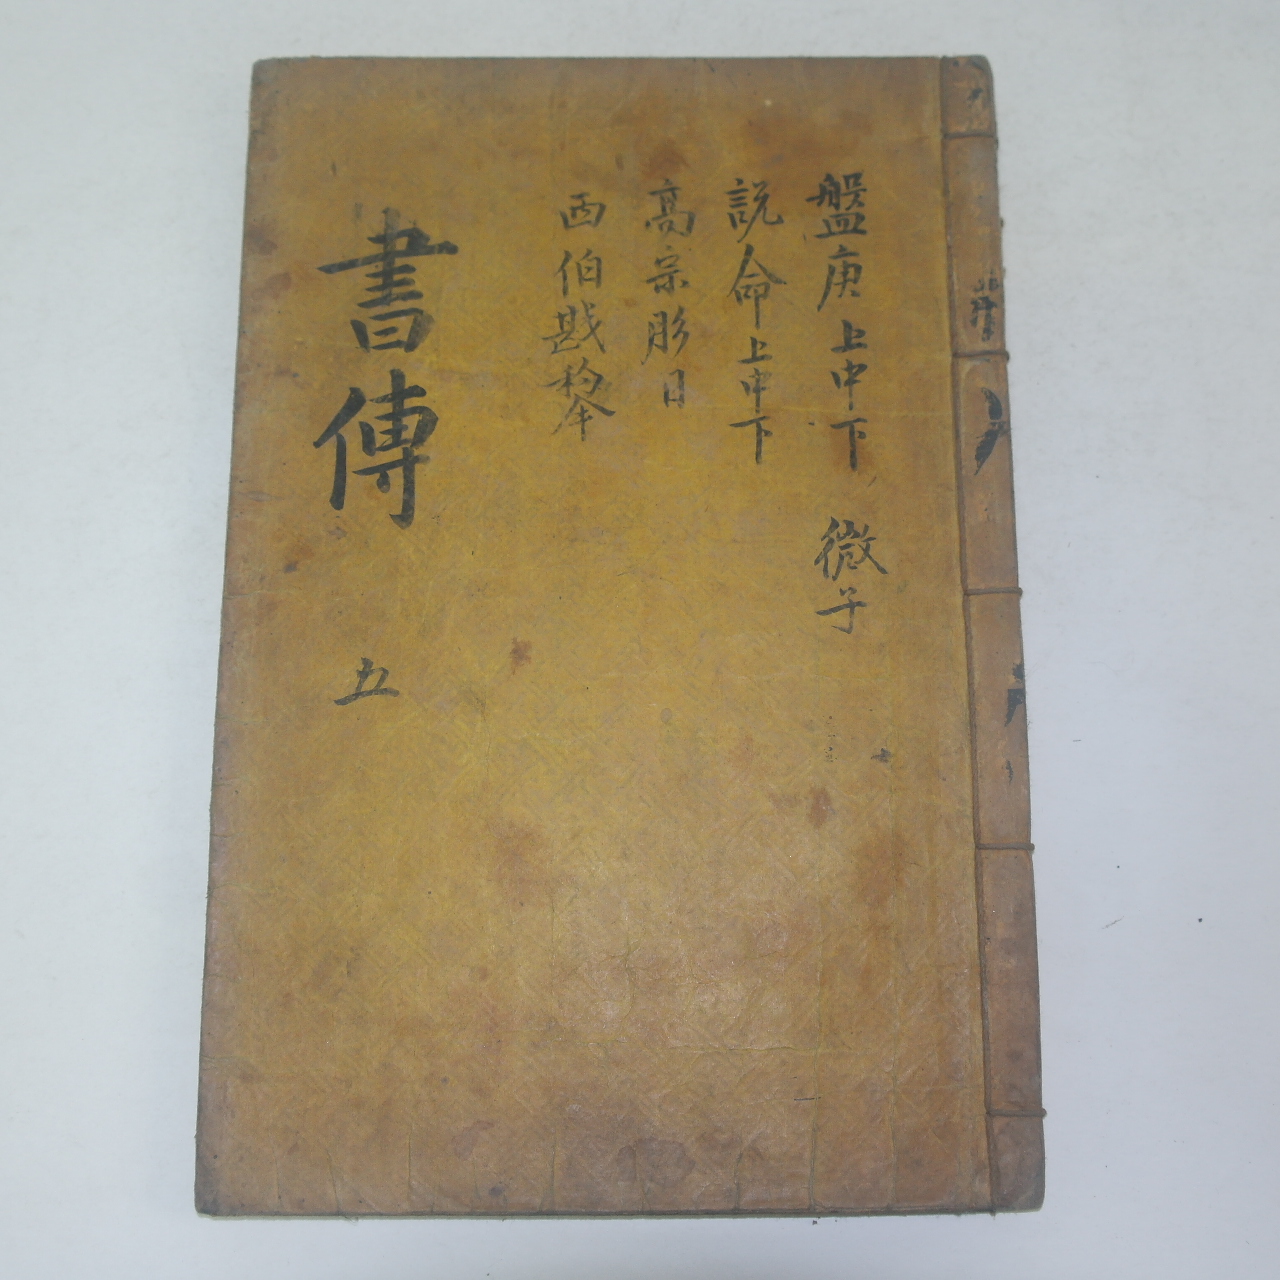 盤庚上中下 微子
說命上中下
高宗肜日
西伯戡黎
書傳 五